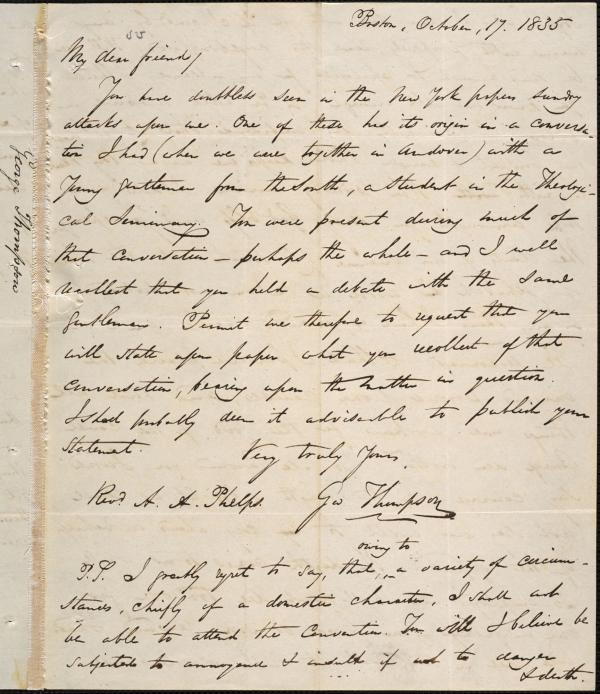 Boston, October, 17. 1835
55
My dear friend,
You have doubtless seen in the New York papers sundry
attacks upon me. One of these has its origin in a conversa-
tion I had (when we were together in Andover) with a
Young gentleman from the South, a student in the Theologi-
cal Seminary. You were present during much of
that conversation – perhaps the whole – and I well
recollect that you held a debate with the same
gentleman. Permit me therefore to request that you
will state upon paper what you recollect of that
conversation, bearing upon the matter in question.
I shall probably deem it advisable to publish your
statement.
Very truly Yours,
Revd. A. A. Phelps. Geo Thompson
owing to
P.S. I greatly regret to say, that, ^ a variety of circum-
stances, chiefly of a domestic character, I shall not
be able to attend the Convention. You will I believe be
subjected to annoyance & insult if not to danger
& death.
George Thompson